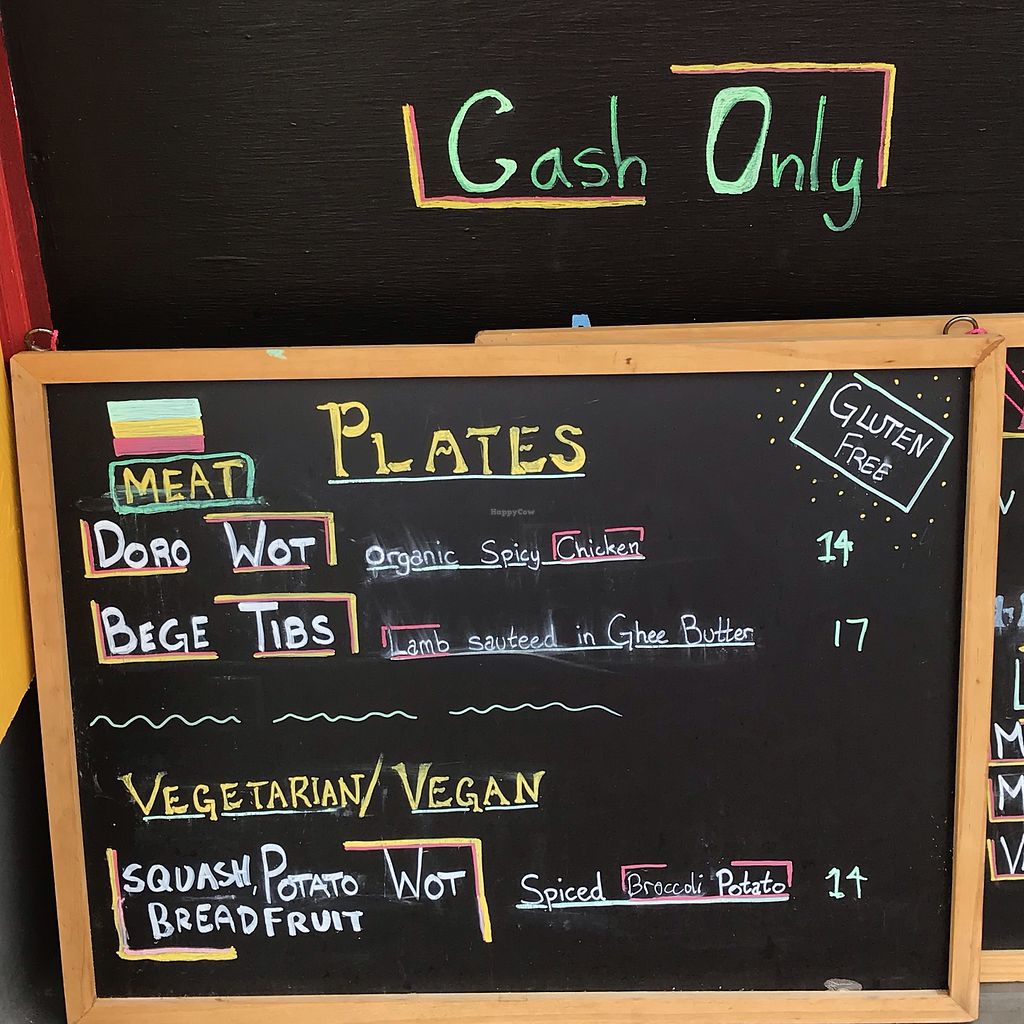 Cash Only
PLATES
GLUTEN
FREE
MEAT
HappyCow
DORO WOT Organic Spicy Chicken 14
BEGE TIBS Lamb sauteed in Ghee Butter 17
VEGETARIAN/ VEGAN
SQUASH, POTATO WOT Spiced Broccoli Potato 14
BREADFRUIT